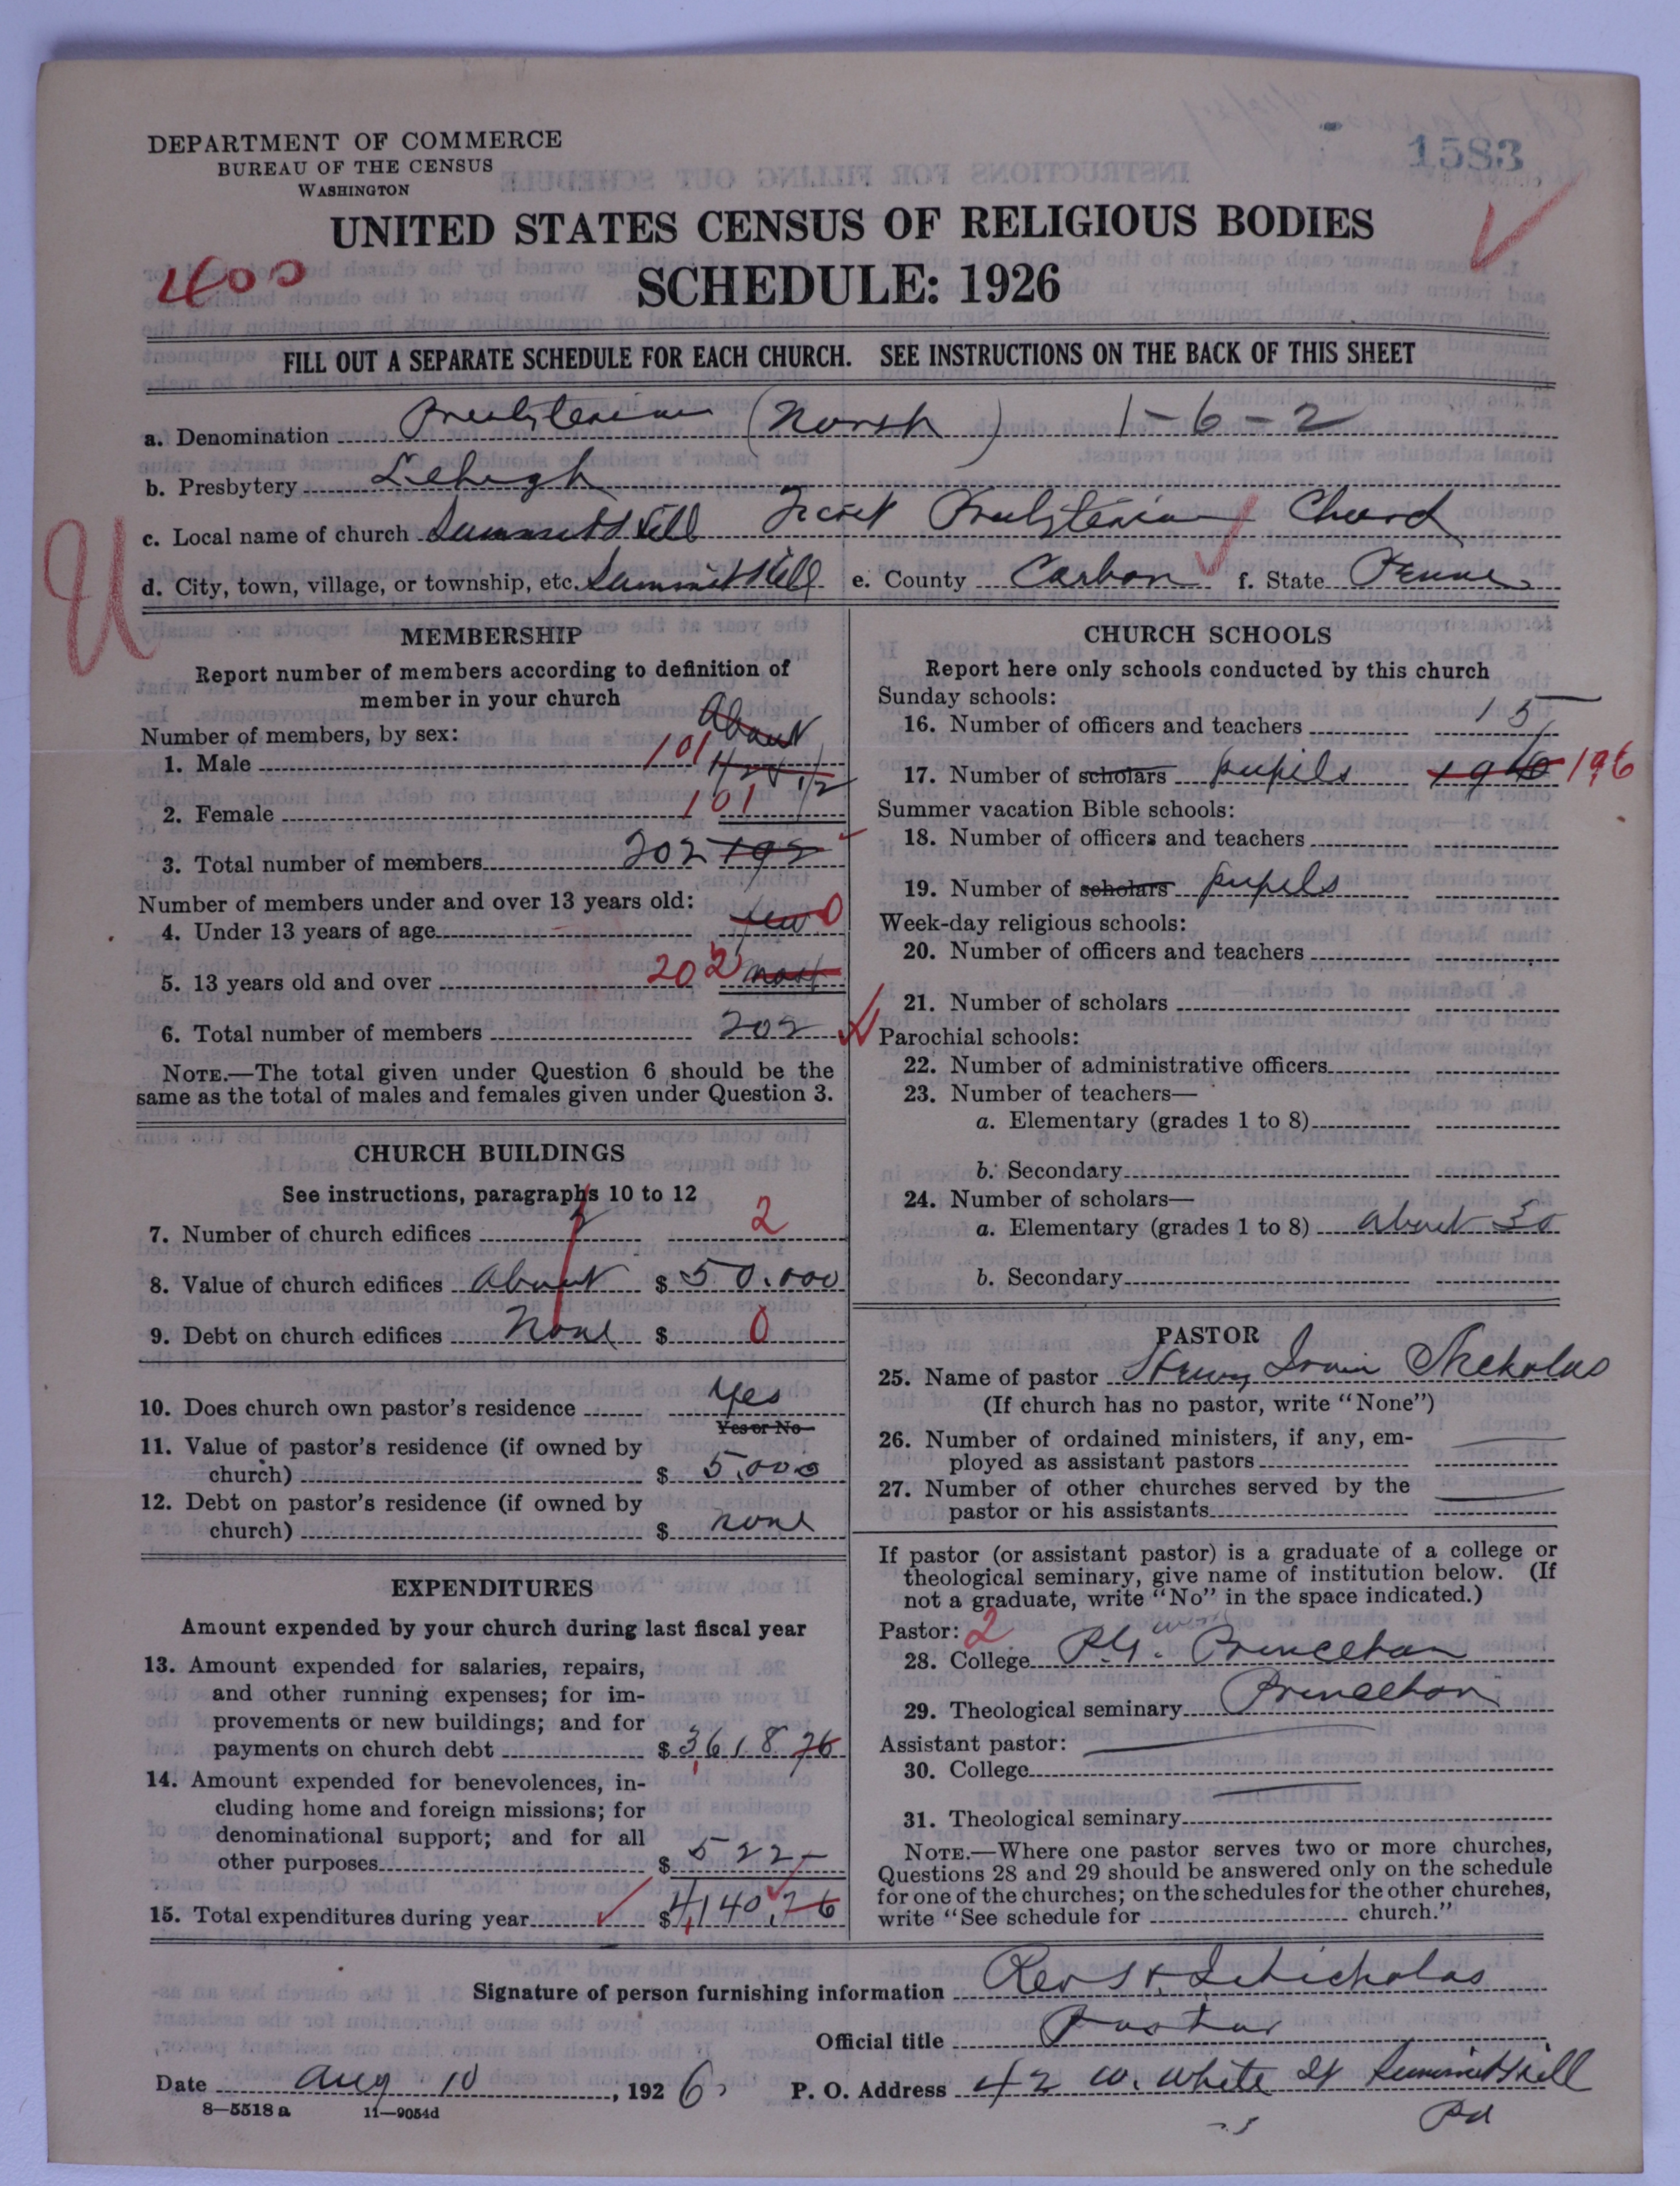 1583
DEPARTMENT OF COMMERCE
BUREAU OF THE CENSUS
WASHINGTON
UNITED STATES CENSUS OF RELIGIOUS BODIES
400
SCHEDULE: 1926
FILL OUT A SEPARATE SCHEDULE FOR EACH CHURCH. SEE INSTRUCTIONS ON THE BACK OF THIS SHEET
a. Denomination Presbyterian (North) 1-6-2
b. Presbytery Lehigh
c. Local name of church Summit Hill First Presbyterian Church
d. City, town, village, or township, etc. Summit Hill e. County Carbon f. State Penna
U
MEMBERSHIP
Report number of members according to definition of
member in your church
About
Number of members, by sex:
1. Male 101 1/2
2. Female 101 1/2
3. Total number of members 202 192
Number of members under and over 13 years old:
4. Under 13 years of age few 0
5. 13 years old and over 202 most
6. Total number of members 202
NOTE.—The total given under Question 6 should be the
same as the total of males and females given under Question 3.
CHURCH BUILDINGS
See instructions, paragraphs 10 to 12
7. Number of church edifices 2 2
8. Value of church edifices About $ 50.000
9. Debt on church edifices None $ 0
10. Does church own pastor's residence Yes
Yes or No
11. Value of pastor's residence (if owned by
church) $ 5,000
12. Debt on pastor's residence (if owned by
church) $ none
EXPENDITURES
Amount expended by your church during last fiscal year
13. Amount expended for salaries, repairs,
and other running expenses; for im-
provements or new buildings; and for
payments on church debt $ 3,618 76
14. Amount expended for benevolences, in-
cluding home and foreign missions; for
denominational support; and for all
other purposes $ 522 -
15. Total expenditures during year $ 4,140.76
CHURCH SCHOOLS
Report here only schools conducted by this church
Sunday schools:
16. Number of officers and teachers 15
17. Number of scholars pupils 196 196
Summer vacation Bible schools:
18. Number of officers and teachers
19. Number of scholars pupils
Week-day religious schools:
20. Number of officers and teachers
21. Number of scholars
Parochial schools:
22. Number of administrative officers
23. Number of teachers—
a. Elementary (grades 1 to 8)
b. Secondary
24. Number of scholars—
a. Elementary (grades 1 to 8) about 50
b. Secondary
PASTOR
25. Name of pastor Irvin Nicholas
(If church has no pastor, write "None")
26. Number of ordained ministers, if any, em-
ployed as assistant pastors
27. Number of other churches served by the
pastor or his assistants
If pastor (or assistant pastor) is a graduate of a college or
theological seminary, give name of institution below. (If
not a graduate, write "No" in the space indicated.)
Pastor: 2
28. College P.G. work Princeton
29. Theological seminary Princeton
Assistant pastor:
30. College
31. Theological seminary
NOTE.—Where one pastor serves two or more churches,
Questions 28 and 29 should be answered only on the schedule
for one of the churches; on the schedules for the other churches,
write "See schedule for church."
Signature of person furnishing information Rev Nicholas
Official title Pastor
Date Aug 10, 1926 P. O. Address 42 W. White St Summit Hill
Pa
8—5518 a 11—9054d